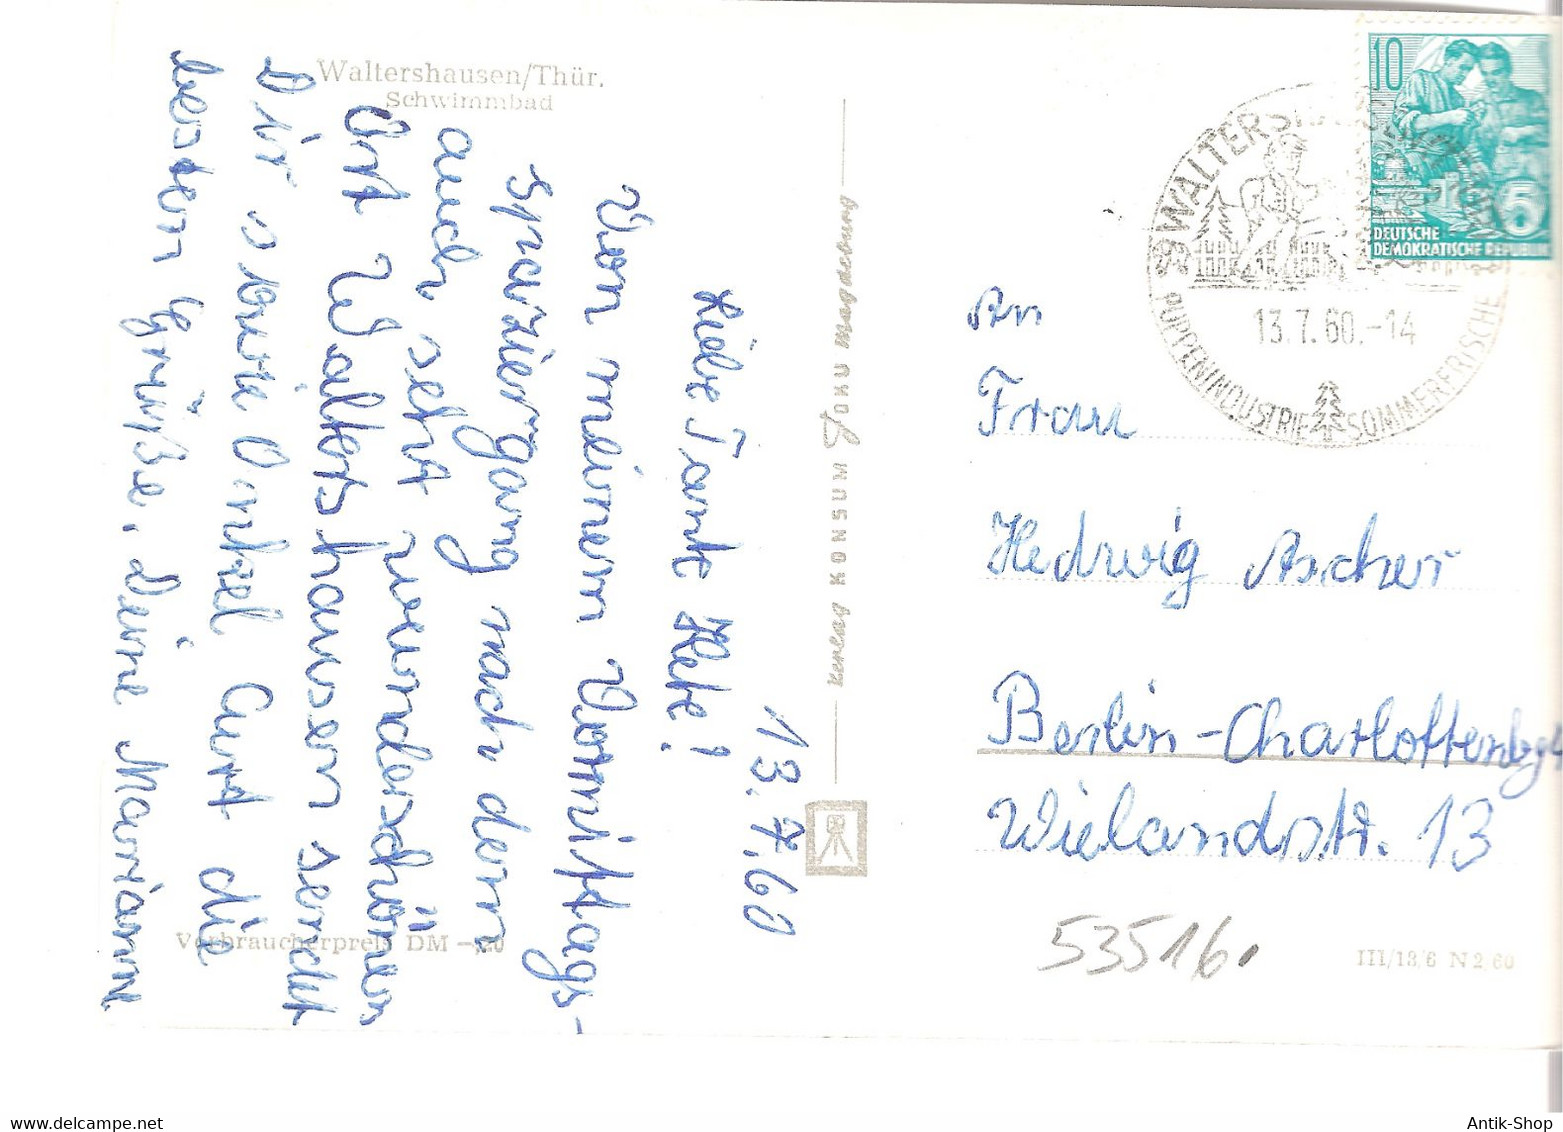 Waltershausen/Thür.
Schwimmbad
13.7.60
Liebe Tante Hete!
Von meinem Vormittags-
spaziergang nach dem
auch sehr wunderschönen
Ort Waltershausen sendet
Dir sowie Onkel Curt die
besten Grüße, Deine Mariann
Verbraucherpreis DM -,20
Verlag KONSUM FOKU Magdeburg
10
5
DEUTSCHE
DEMOKRATISCHE REPUBLIK
WALTERSHAUSEN
PUPPENINDUSTRIE SOMMERFRISCHE
13.7.60.-14
An
Frau
Hedwig Ascher
Berlin-Charlottenbg
Wielandstr. 13
53516
III/18/6 N 2/60
Antik-Shop